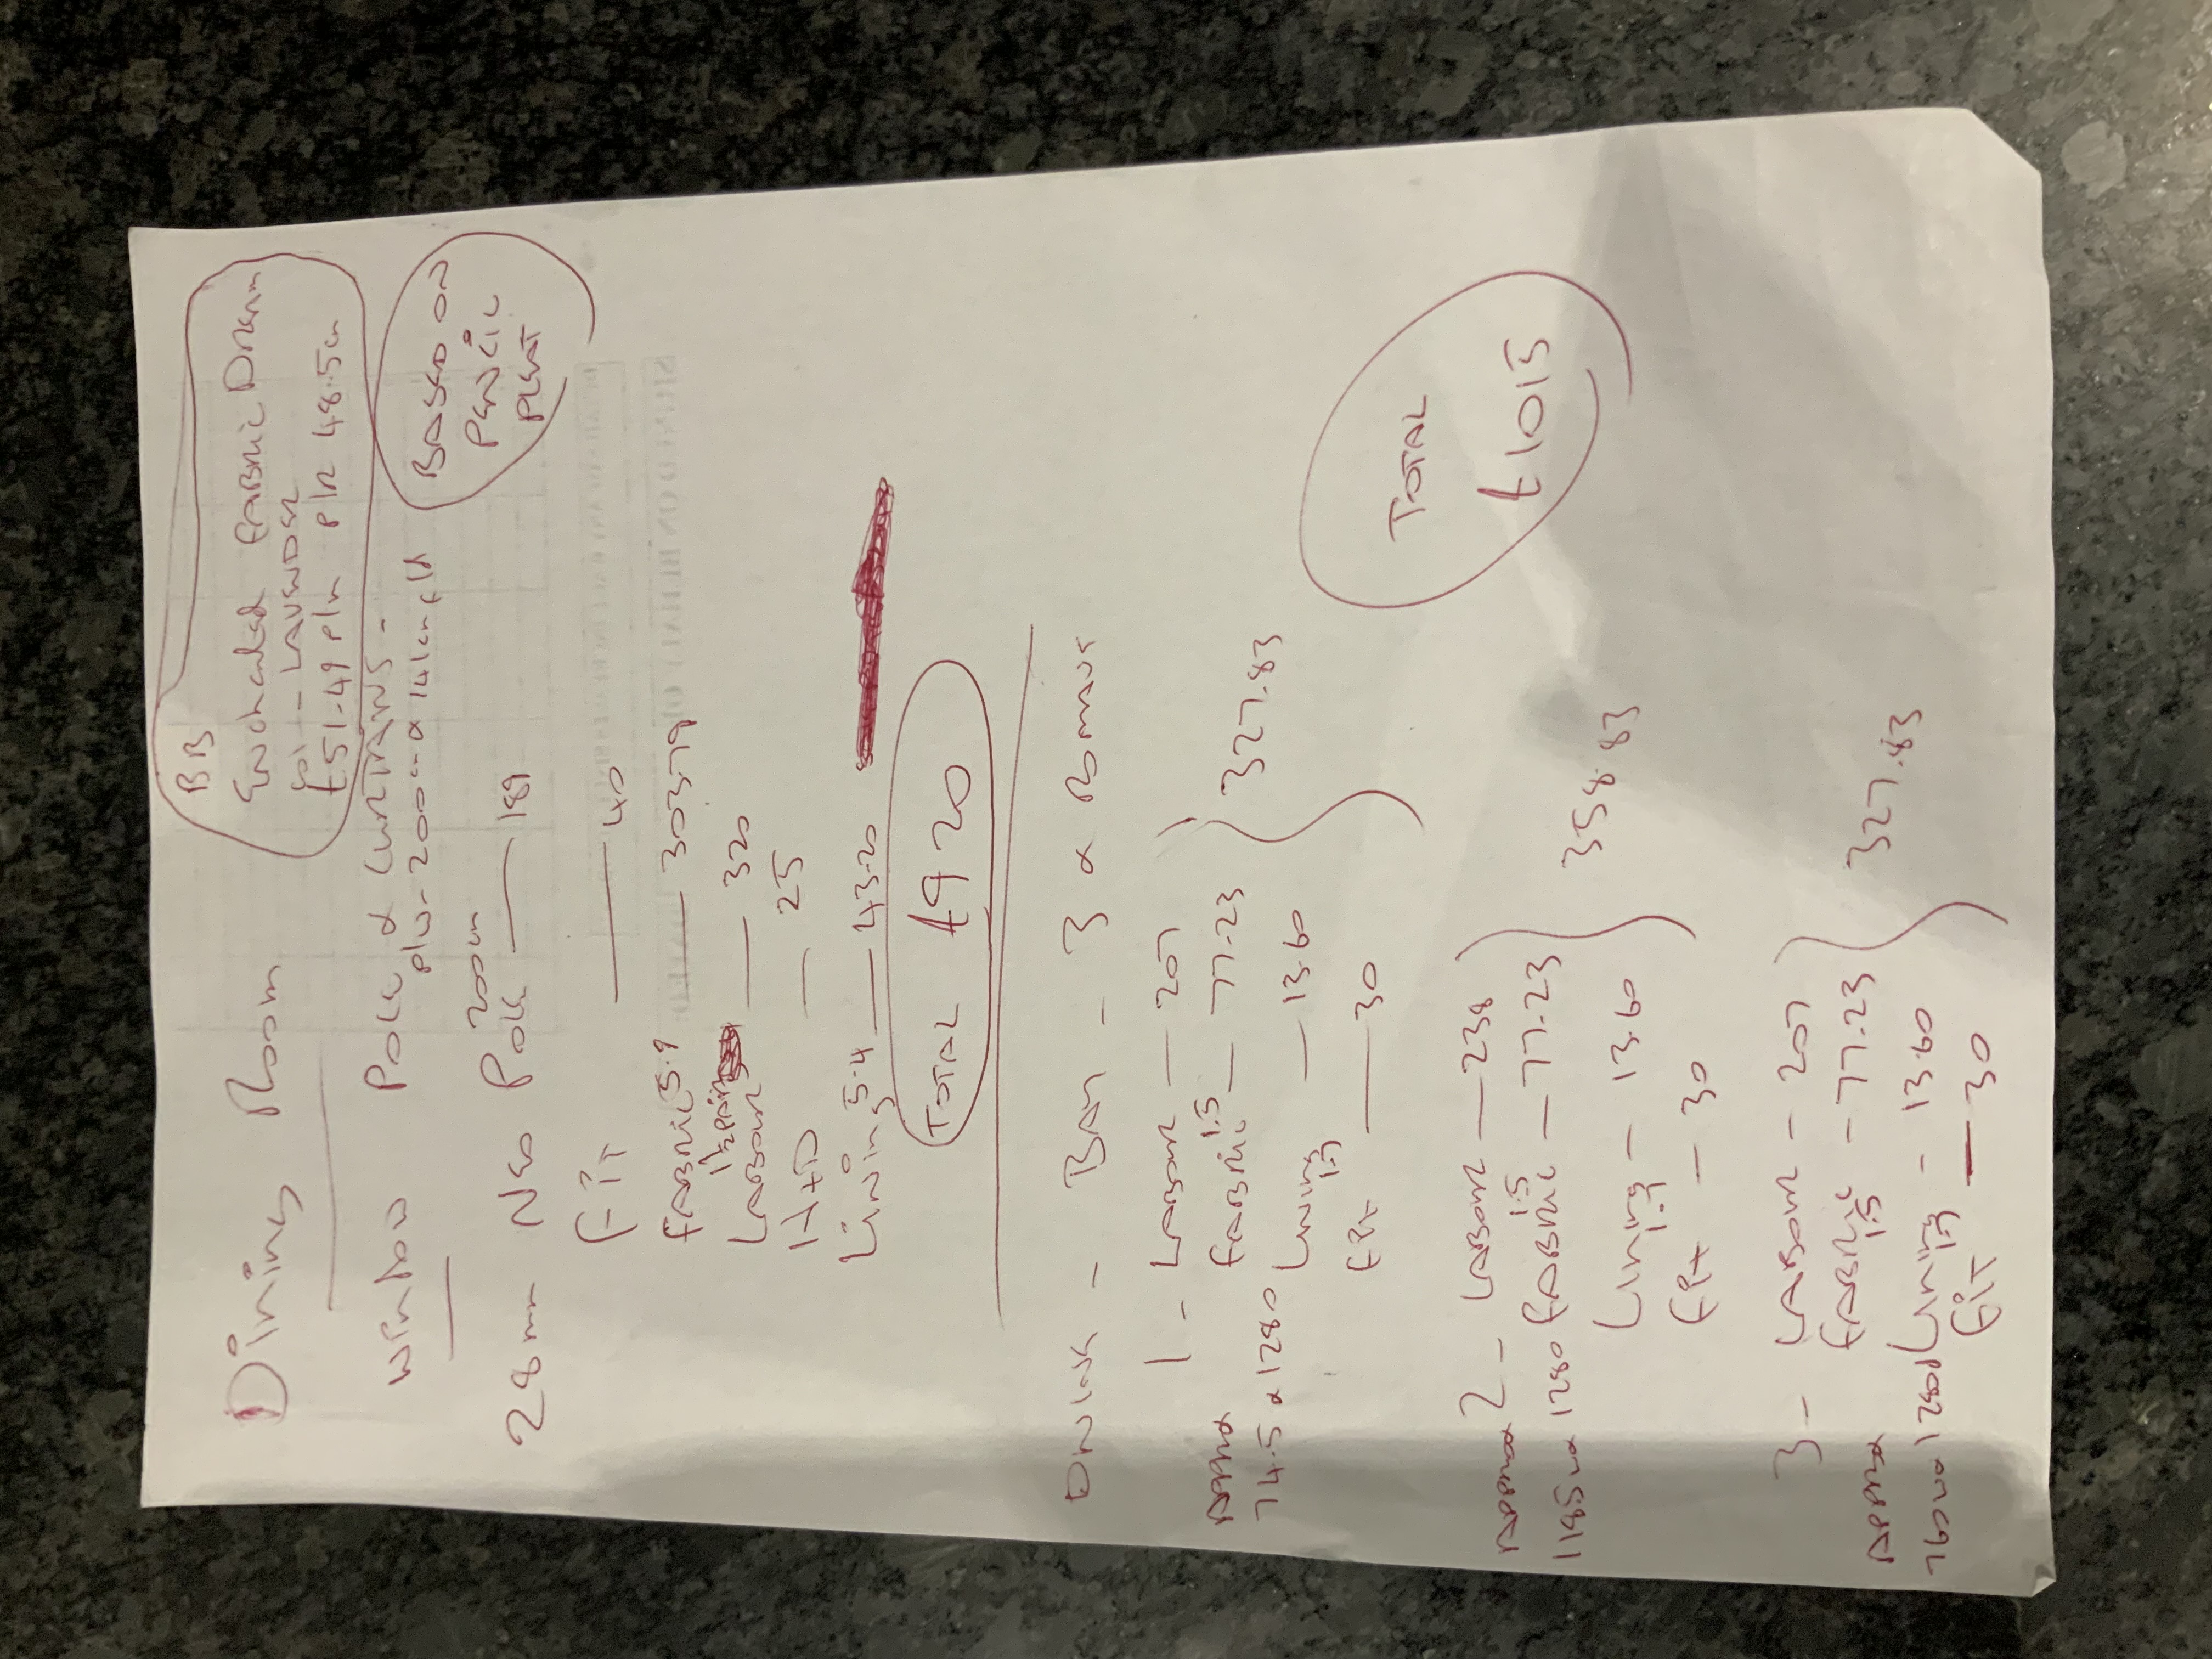 BB
Dining Room
Enchanted Fabric Dream
Col - LAVENDER
£51-49 p/m p/r 48.5cm
Window Pole & CURTAINS -
BASED ON
PENCIL
PLEAT
200cm
28mm Neo Pole — 189
FiT — 40
FABRIC 5.9 — 303.79
LABOUR — 320
H+D — 25
Lining 5.4 — 43.20
TOTAL £920
- BAY - 3 x Romans
1 - LABOUR — 207
FABRIC 1.5 — 77-23
Approx
74.5 x 1280 Lining 1.7 — 13.60
Fit — 30
327.83
TOTAL
£1015
2 - LABOUR — 238
Approx
118.5w x 1280 FABRIC 1.5 — 77.23
Lining 1.7 — 13.60
Fit — 30
358.83
3 - LABOUR - 207
FABRIC 1.5 - 77.23
Approx
76w x 1280d Lining 1.7 - 13.60
FiT — 30
327.83